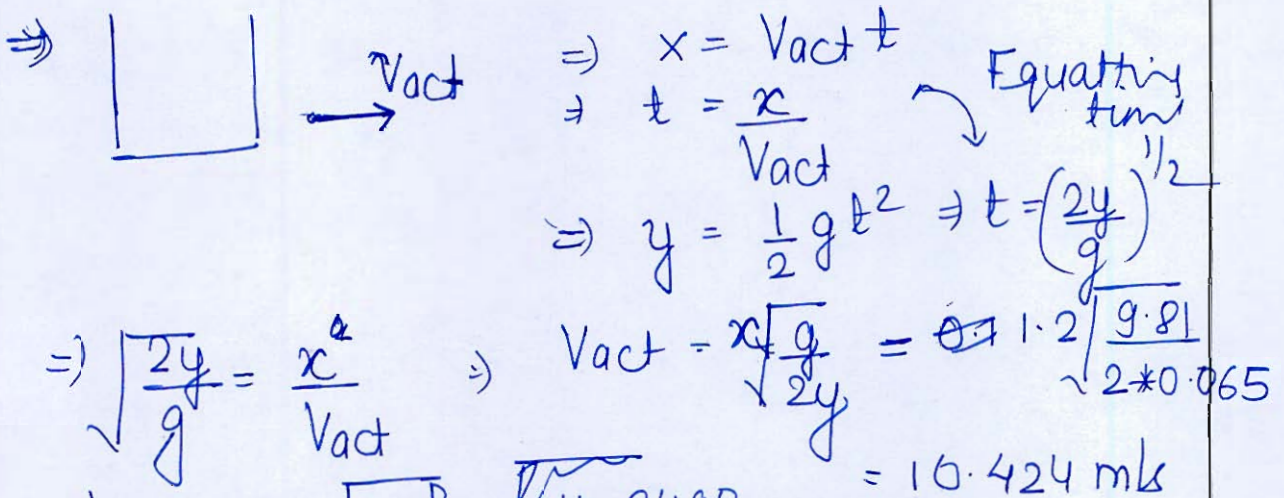 ⇒ Vact ⇒ x = Vact t
⇒ t = x / Vact Equatting time
⇒ y = 1/2 g t² ⇒ t = (2y/g)^1/2
⇒ √(2y/g) = x / Vact ⇒ Vact = x√(g/2y) = 1.2√(9.81 / 2*0.065)
= 10.424 m/s